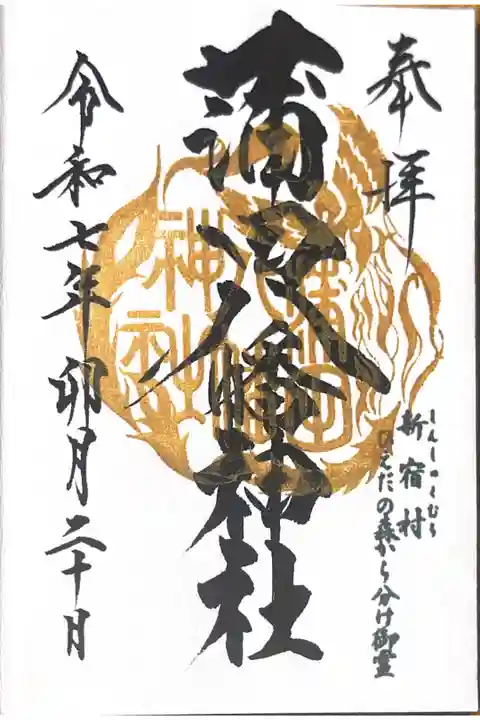 奉拝
しんしゅくむら
新宿村
ひえだの森から分け御霊
蒲田八幡神社
蒲田
八幡
神社
令和七年卯月二十日